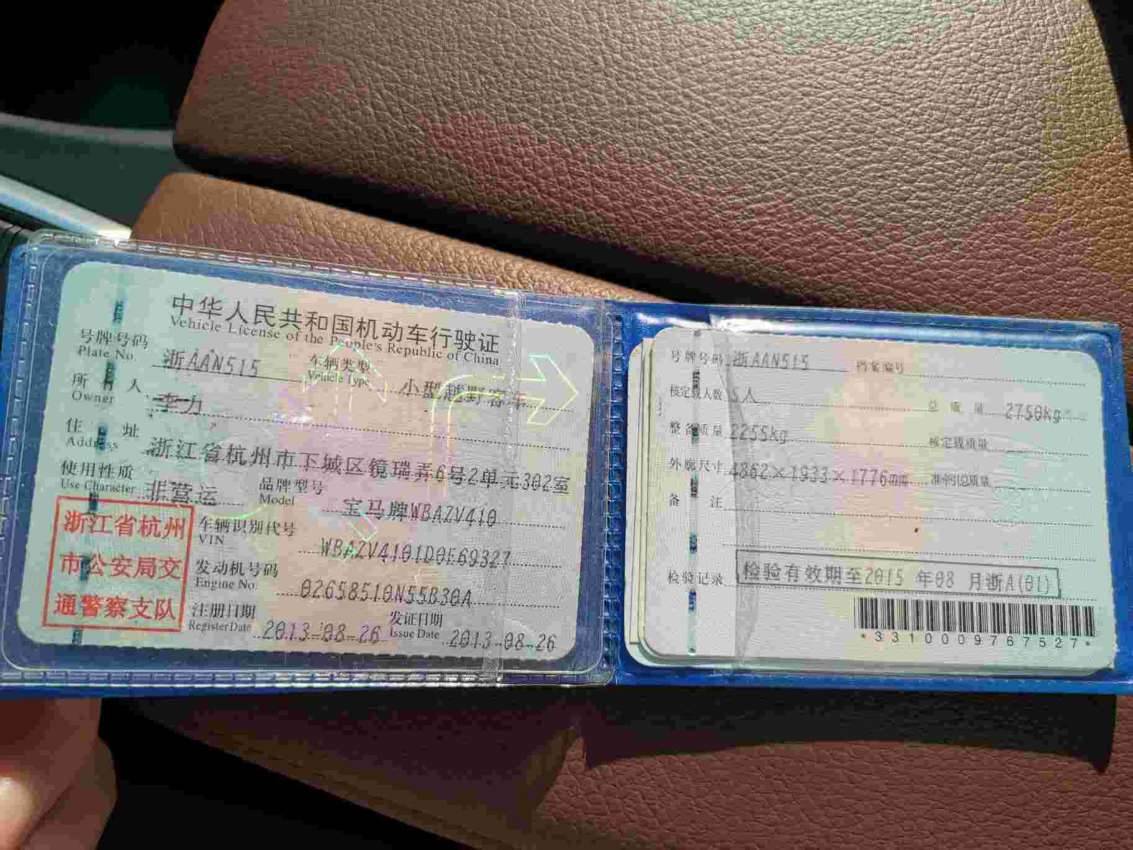 中华人民共和国机动车行驶证
Vehicle License of the People's Republic of China
号牌号码 浙AAN515 车辆类型 小型越野客车
Plate No. Vehicle Type
所有人 李力
Owner
住址 浙江省杭州市下城区镜瑞弄6号2单元302室
Address
使用性质 非营运 品牌型号 宝马牌WBAZV410
Use Character Model
浙江省杭州
市公安局交
通警察支队
车辆识别代号 WBAZV4101D0E69327
VIN
发动机号码 02658510N55B30A
Engine No.
注册日期 2013-08-26 发证日期 2013-08-26
Register Date Issue Date
号牌号码 浙AAN515 档案编号
核定载人数 5人 总质量 2750kg
整备质量 2255kg 核定载质量
外廓尺寸 4862×1933×1776mm 准牵引总质量
备注
检验记录 检验有效期至2015年08月浙A(01)
*3310009767527*